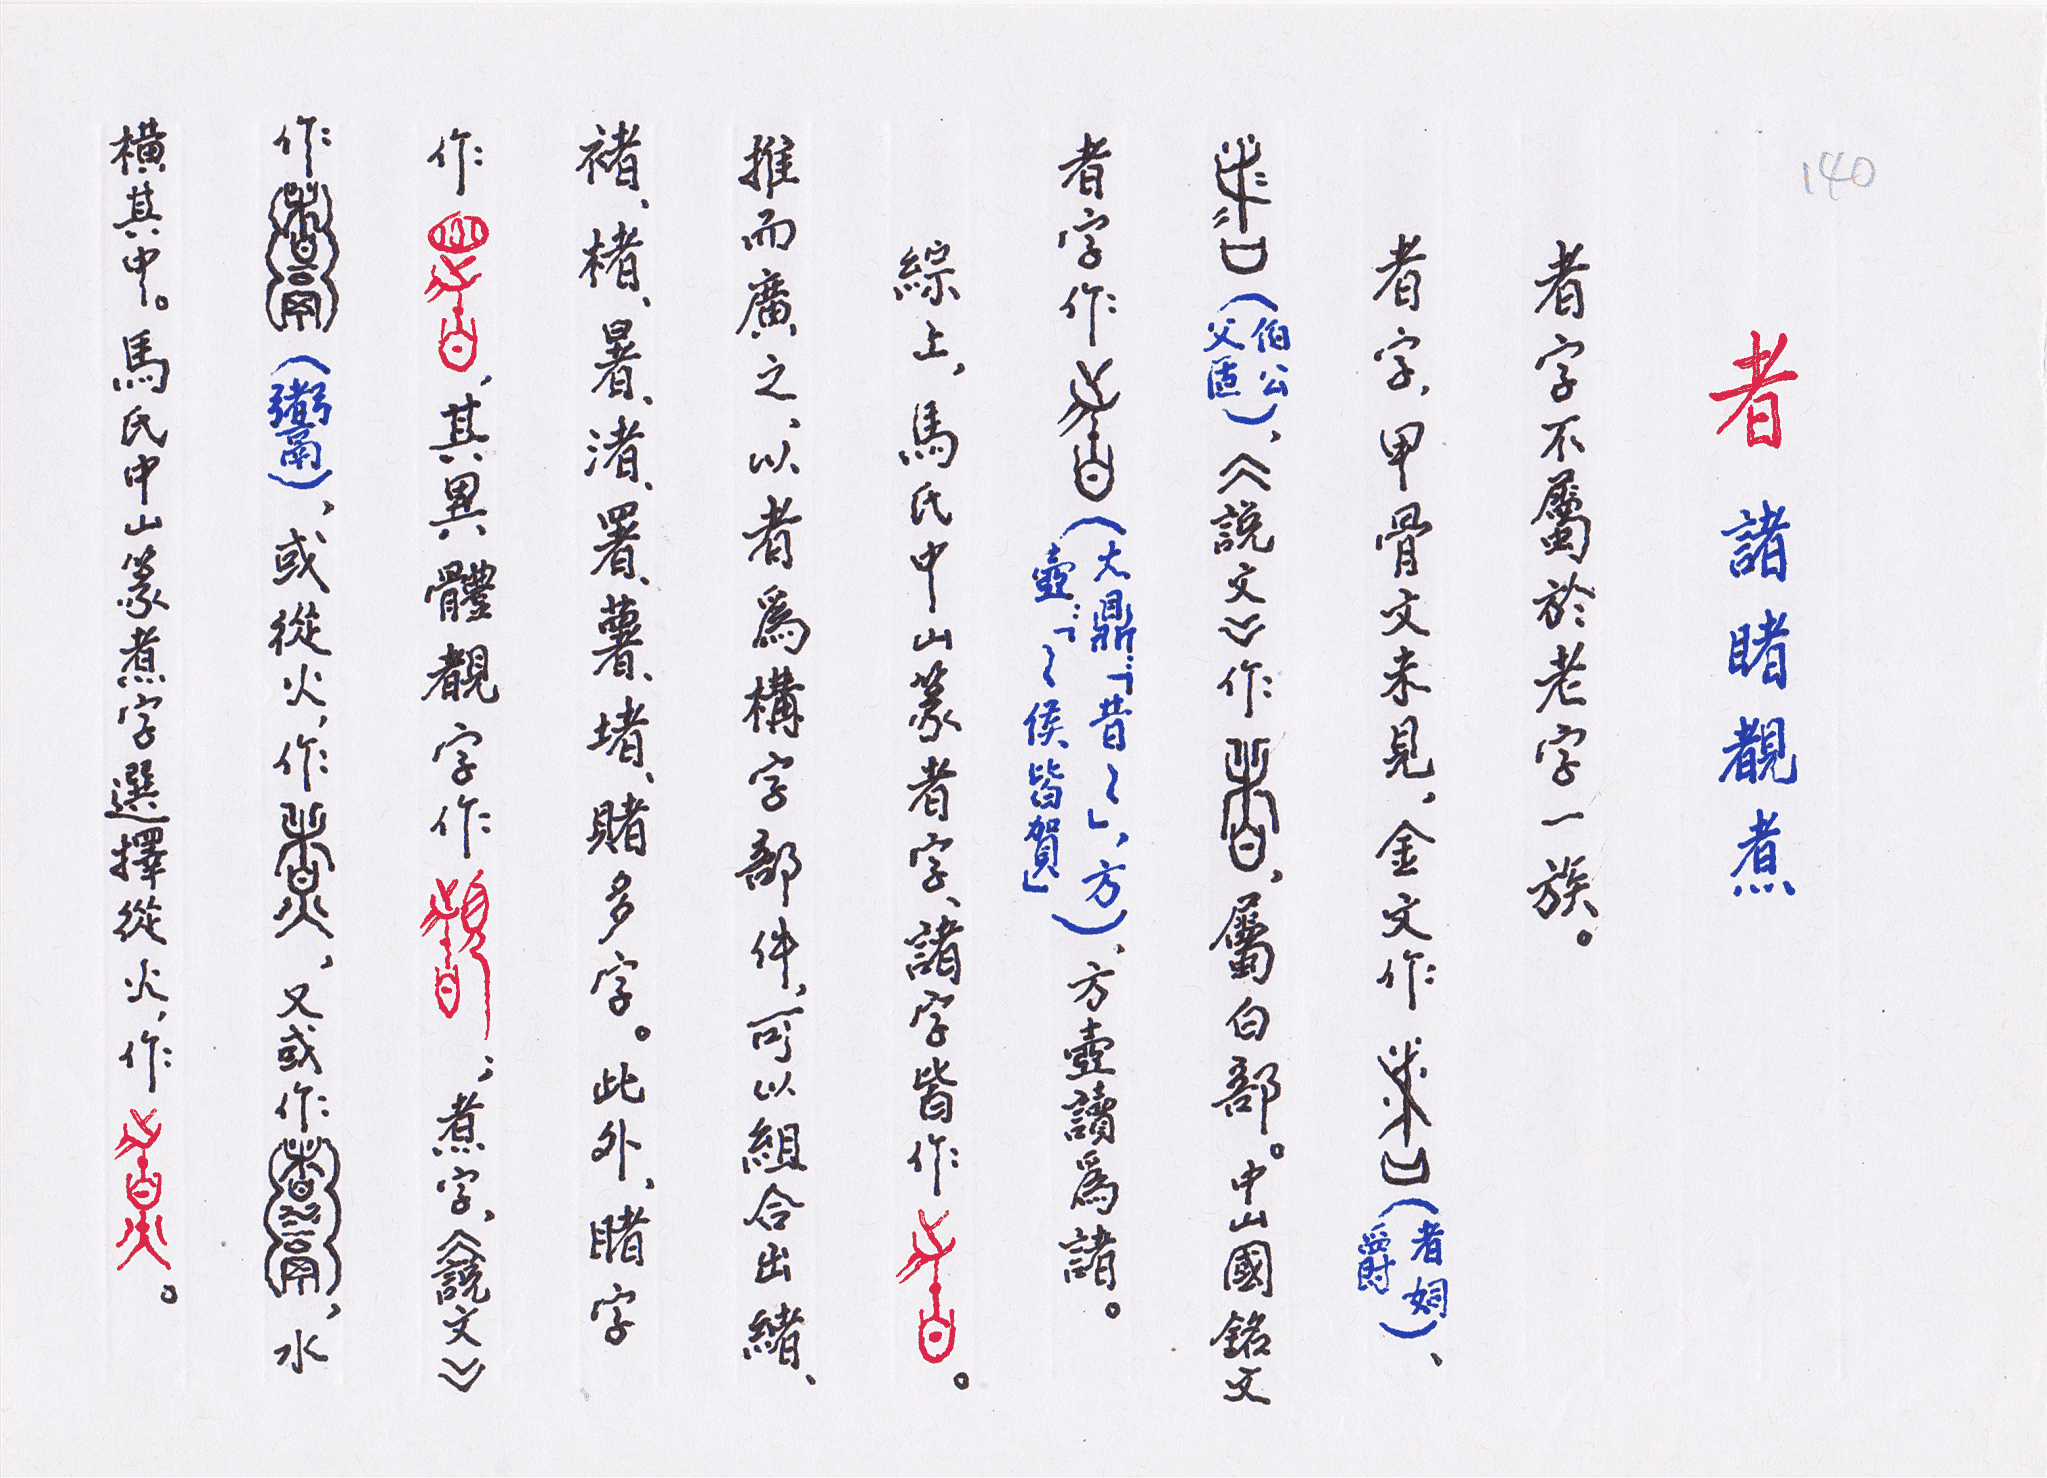 140
者 諸睹覩煮
者字不屬於老字一族。
者字，甲骨文未見，金文作（者姛爵）、
（伯公父簠），《說文》作，屬白部。中山國銘文
者字作（大鼎：「昔〻」，方壺：「〻侯皆賀」），方壺讀爲諸。
綜上，馬氏中山篆者字、諸字皆作。
推而廣之，以者爲構字部件，可以組合出緒、
褚、楮、暑、渚、署、薯、堵、賭多字。此外，睹字
作，其異體覩字作；煮字，《說文》
作（䰞），或從火，作，又或作，水
橫其中。馬氏中山篆煮字選擇從火，作。